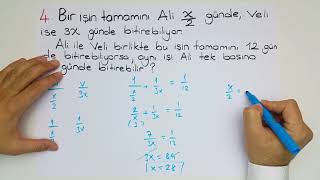 4. Bir işin tamamını Ali x/2 günde, Veli
ise 3x günde bitirebiliyor.
Ali ile Veli birlikte bu işin tamamını 12 gün
de bitirebiliyorsa, aynı işi Ali tek başına
günde bitirebilir?
A V
x/2 3x
1/(x/2) 1/3x
1/(x/2) + 1/3x = 1/12
2/x + 1/3x = 1/12
(3)
7/3x = 1/12
3x = 84
x = 28
x/2 =